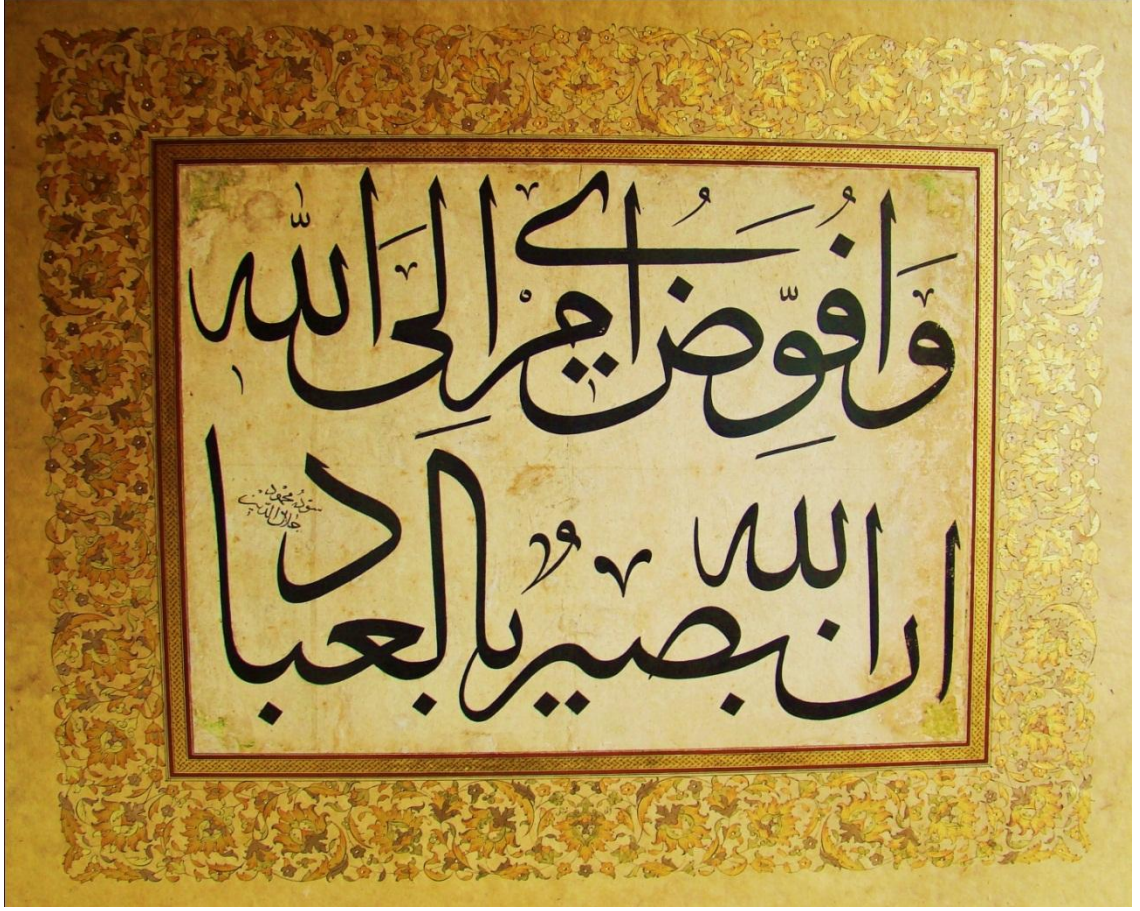 وَافُوِّضُ اَمْرِي اِلَى اللّٰهِ
ان الله بصيرٌ بالعباد
سوّده محمود
جلال الدين